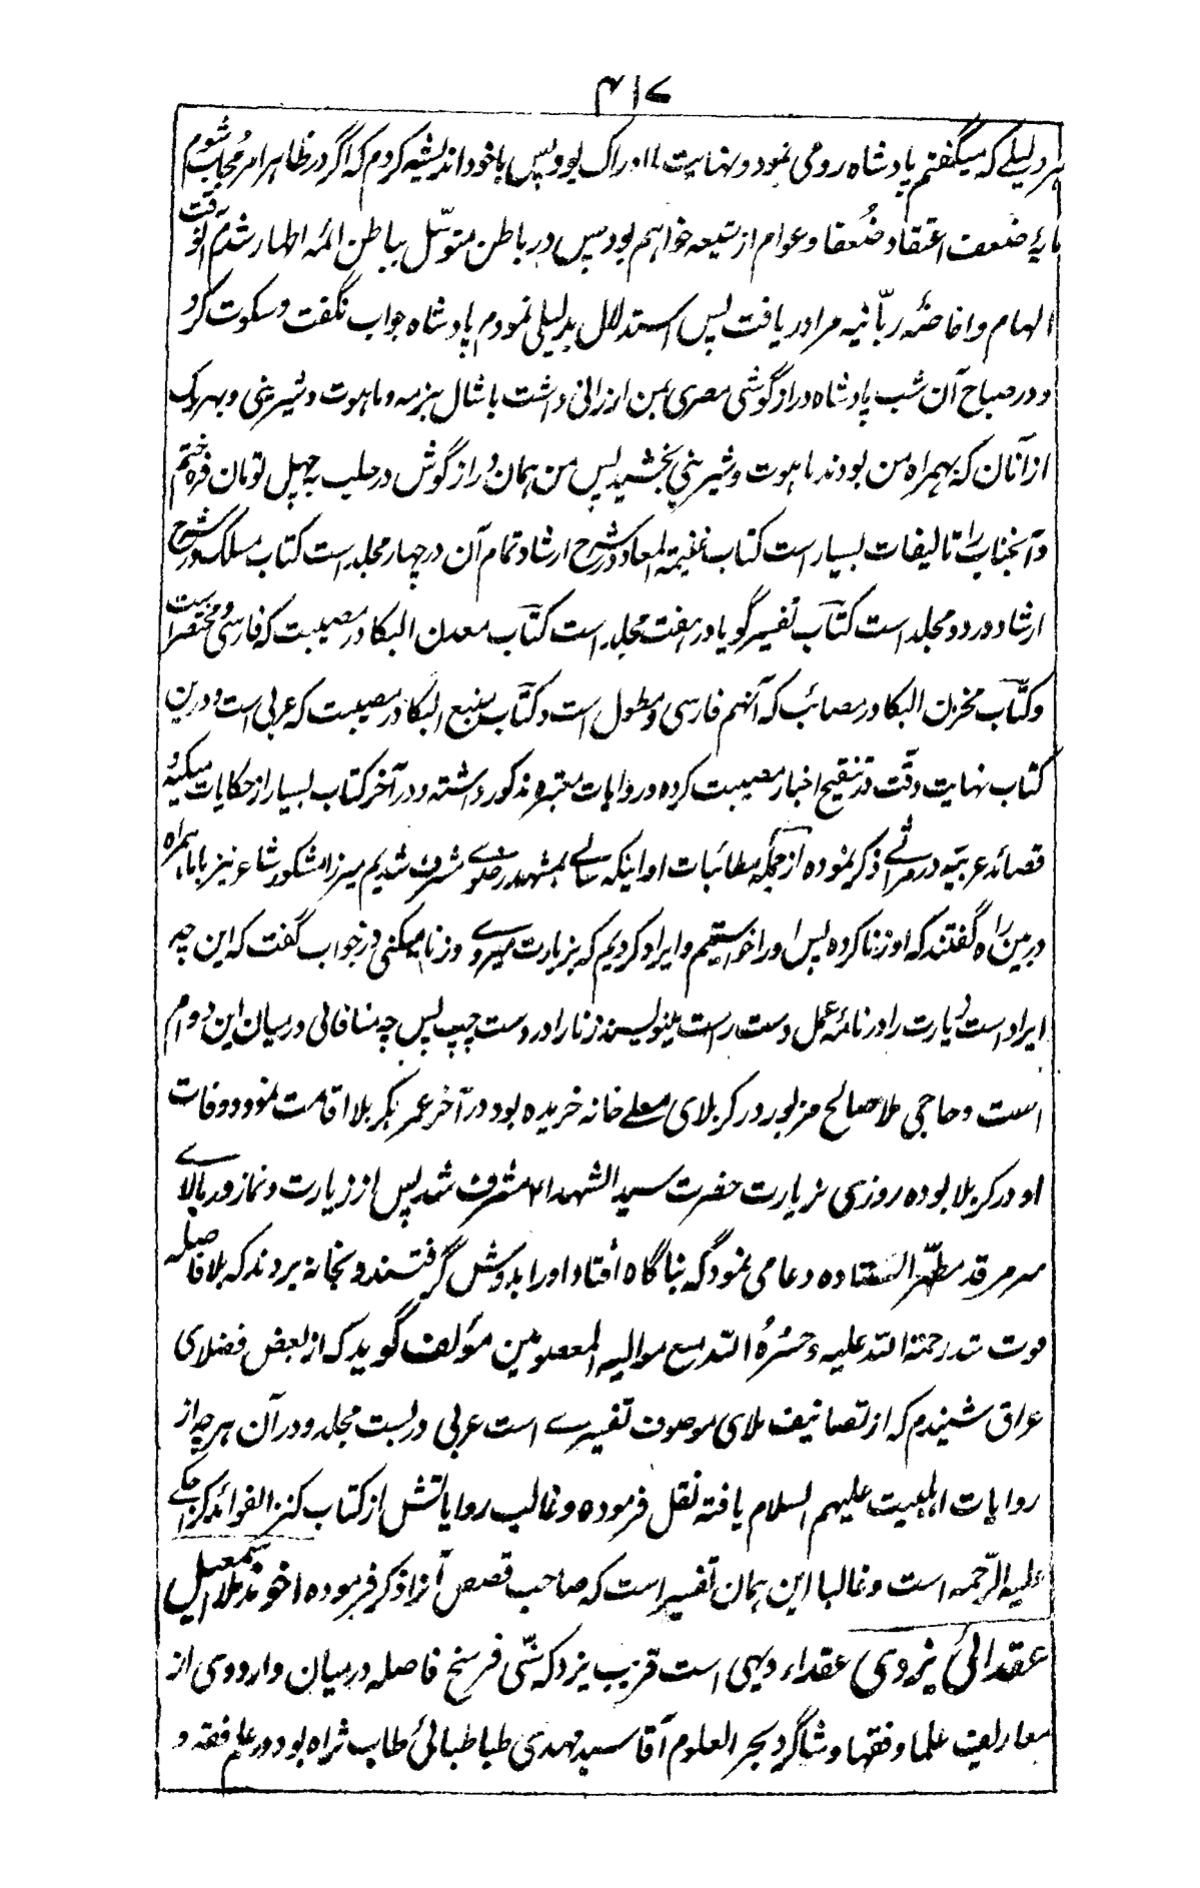 ۴۱۷
هر دلیلے که میگفتم پادشاه رومی نمود و نهایت با ادراک بود پس با خود اندیشه کردم که اگر در ظاهر امر مجاب شوم
مایهٔ ضعف اعتقاد ضُعفا و عوام از شیعه خواهم بود پس در باطن متوسّل بباطن ائمه اطهار شدم آنوقت
الهام و افاضهٔ ربّانیه مرا دریافت پس استدلال بدلیلی نمودم پادشاه جواب نگفت و سکوت کرد
و در صباح آن شب پادشاه درازگوشی مصری بمن ارزانی داشت با شال بزمه و ماهوت و شیرینی و بهریک
از آنان که بهمراه من بودند ماهوت و شیرینی بخشید پس من همان درازگوش در حلب به چهل تومان فروختم
و آنجناب را تالیفات بسیار است کتاب غنیمة المعاد در شرح ارشاد و تمام آن در چهار مجلد است کتاب مسلک در شرح
ارشاد در دو مجلد است کتاب تفسیر گویا در هفت مجلد است کتاب معدن البکا در مصیبت که فارسی و مختصر است
و کتاب مخزن البکا در مصائب که آنهم فارسی و مطول است و کتاب منبع البکا در مصیبت که عربی است و درین
کتاب نهایت دقّت در تنقیح اخبار مصیبت کرده و روایات معتبره مذکور داشته و در آخر کتاب بسیار از حکایات مبکیه
قصائد عربیّه در مراثے ذکر نموده از جمله مطائبات او اینکه سالے بمشهد رضوے مشرف شدیم میرزا مشکور شاعر نیز با ما همراه
در بین راه گفتند که او زنا کرده پس او را خواستیم و ایراد کردیم که بزیارت میروے و زنا میکنی در جواب گفت که این چه
ایراد است زیارت را در نامهٔ عمل دست راست مینویسند زنا را در دست چپ پس چه منافاتی درمیان این دو ام
است و حاجی ملا صالح مزبور در کربلای معلے خانه خریده بود در آخر عمر بکربلا اقامت نمود و وفات
او در کربلا بوده روزی بزیارت حضرت سید الشهداء مشرف شد پس از زیارت و نماز در بالاے
سر مرقد مطهّر ایستاده دعا می نمود که بناگاه افتاد او را بدوش گرفتند و بخانه بردند که بلا فاصله
فوت شد رحمة الله علیه و حَشَرَهُ الله مع موالیه المعصومین مؤلف گوید که از بعض فضلای
عراق شنیدم که از تصانیف ملای موصوف تفسیرے است عربی در بست مجلد و در آن هرچه از
روایات اهلبیت علیهم السلام یافته نقل فرموده و غالب روایاتش از کتاب کنز الفوائد کراجکے
علیه الرّحمه است و غالبا این همان تفسیر است که صاحب قصص آنرا ذکر فرموده اخوند ملا اسمعیل
عقدائی یزدی عقداء دیهی است قریب یزد که سّی فرسخ فاصله درمیان دارد وی از
معاریف علما و فقها و شاگرد بحر العلوم آقا سید مهدی طباطبائی طاب ثراه بود در علم فقه و